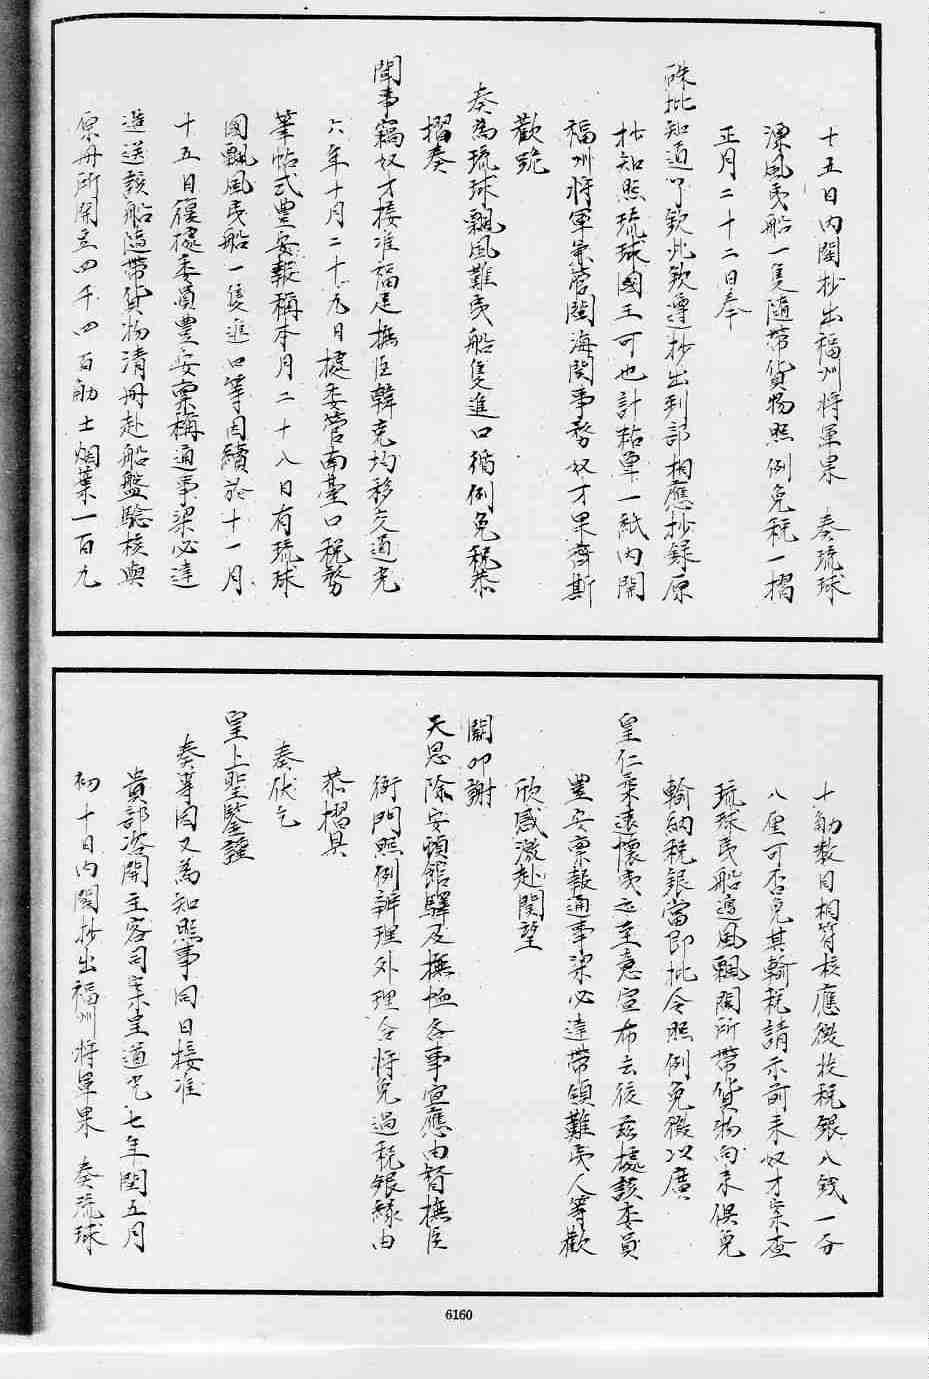 十五日內閣抄出福州將軍果　奏琉球
漂風夷船一隻隨帶貨物照例免稅一摺
正月二十二日奉
硃批知道了欽此欽遵抄出到部相應抄錄原
抄知照琉球國王可也計粘單一紙內開
福州將軍兼管閩海關事務奴才果齊斯
歡跪
奏為琉球飄風難夷船隻進口循例免稅恭
摺奏
聞事竊奴才接准福建撫臣韓克均移交道光
六年十月二十九日據委管南臺口稅務
筆帖式豊安報稱本月二十八日有琉球
國飄風夷船一隻進口等因續於十一月
十五日復據委員豊安稟稱通事梁必達
造送該船隨帶貨物清冊赴船盤驗核與
原冊所開土四千四百觔土烟葉一百九
十觔數目相符核應徵投稅銀八錢一分
八厘可否免其輸稅請示前來奴才案查
琉球夷船遭風飄閣所帶貨物向來俱免
輸納稅銀當即批令照例免徵以廣
皇仁柔遠懷夷之至意宣布去後茲據該委員
豊安稟報通事梁必達帶領難夷人等歡
欣感激赴關望
闕叩謝
天恩除安頓館驛及撫恤各事宜應由督撫臣
衙門照例辦理外理合將免過稅銀緣由
恭摺具
奏伏乞
皇上聖鑒謹
奏等因又為知照事同日接准
貴部咨開主客司案呈道光七年閏五月
初十日內閣抄出福州將軍果　奏琉球
6160